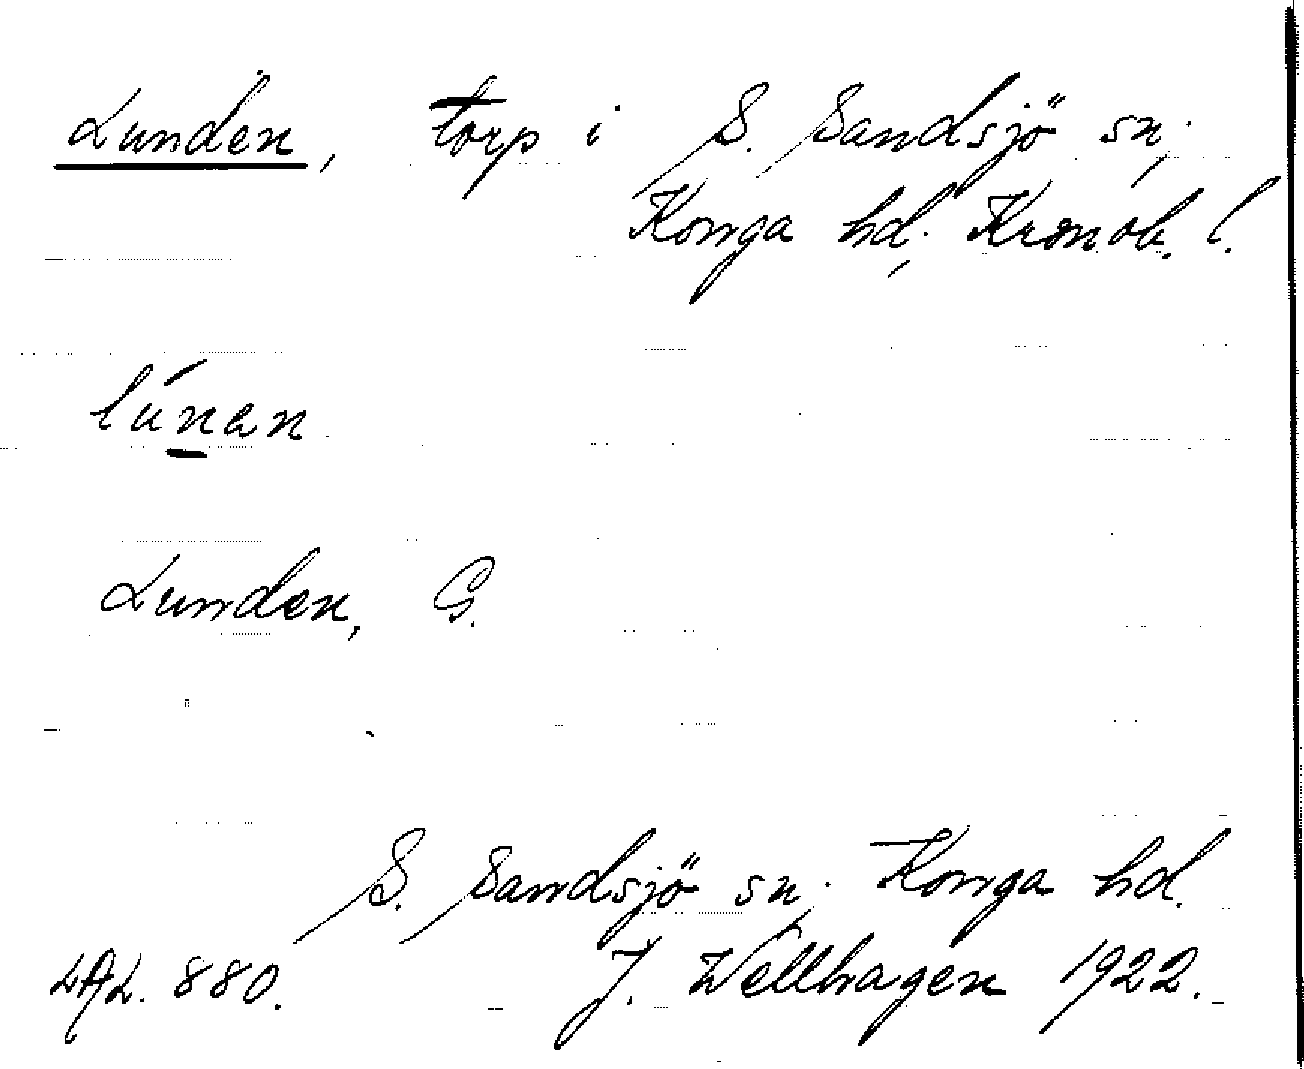 Lunden, torp i S. Sandsjö sn;
Konga hd; Kronob. l.
lúnan
Lunden, G.
S. Sandsjö sn; Konga hd.
LAL. 880. J. Wellhagen 1922.